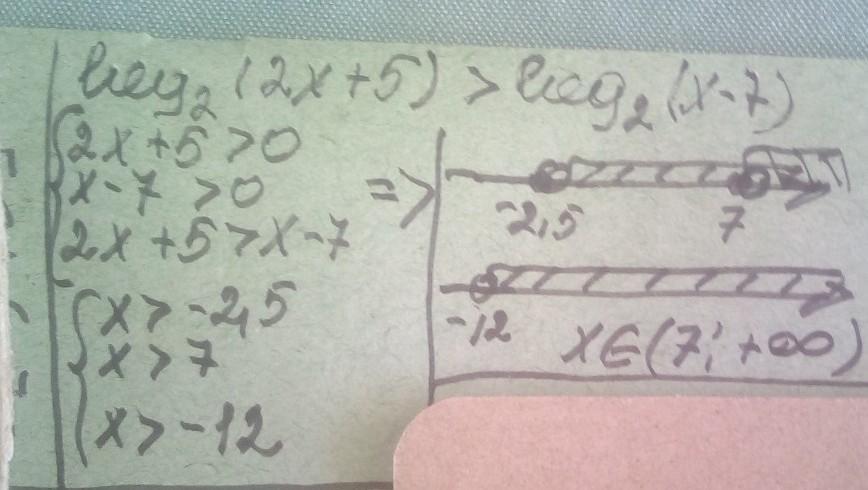 log₂(2x+5) > log₂(x-7)
2x+5>0
x-7>0
2x+5>x-7
=>
x>-2,5
x>7
x>-12
-2,5 7
-12
x∈(7; +∞)